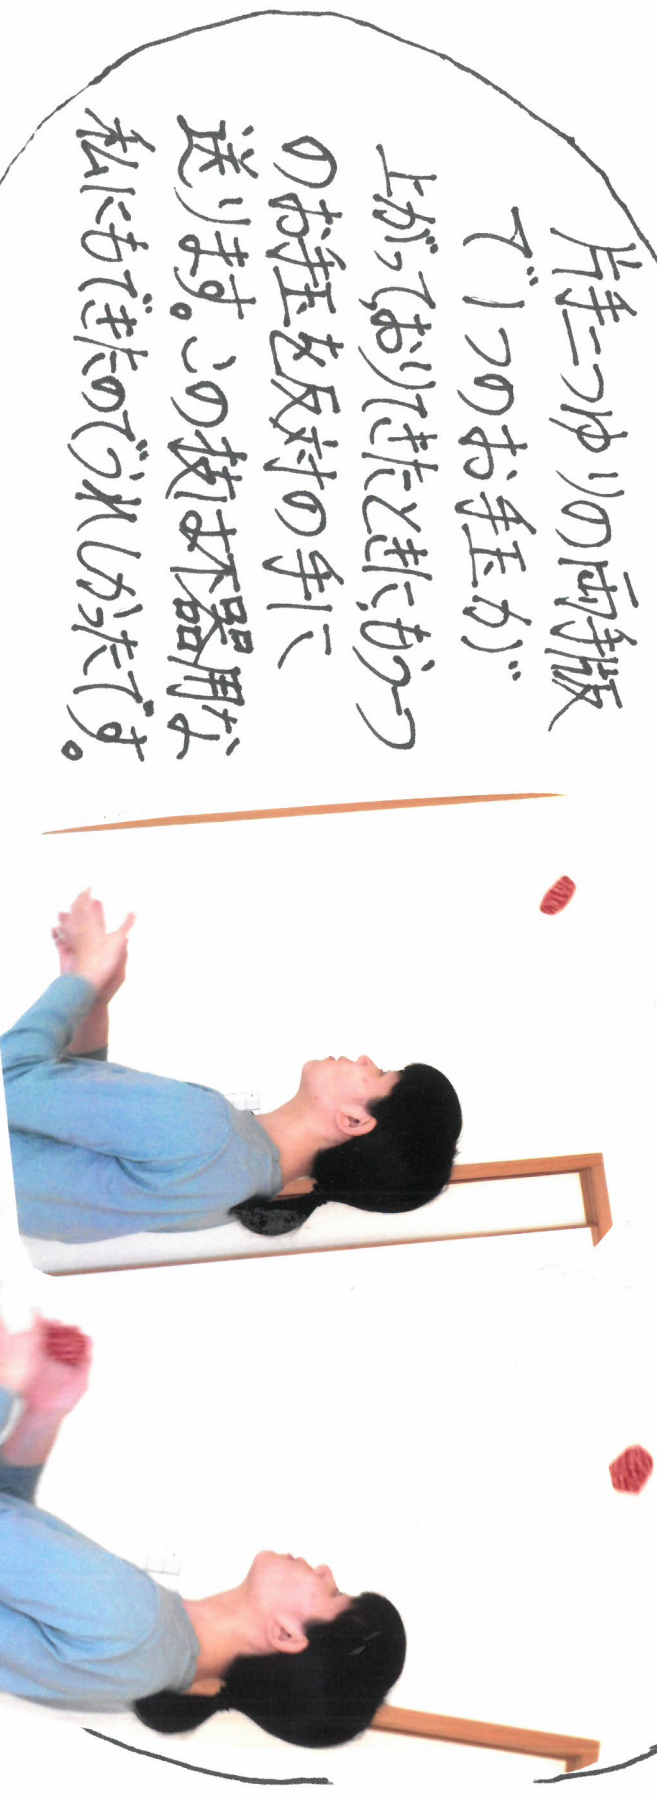 片手二つゆりの両手版
で1つのお手玉が
上がっており​てきたときに、もう一つ
のお手玉を反対の手に
送ります。この技は不器用な
私にもできたのでうれしかったです。